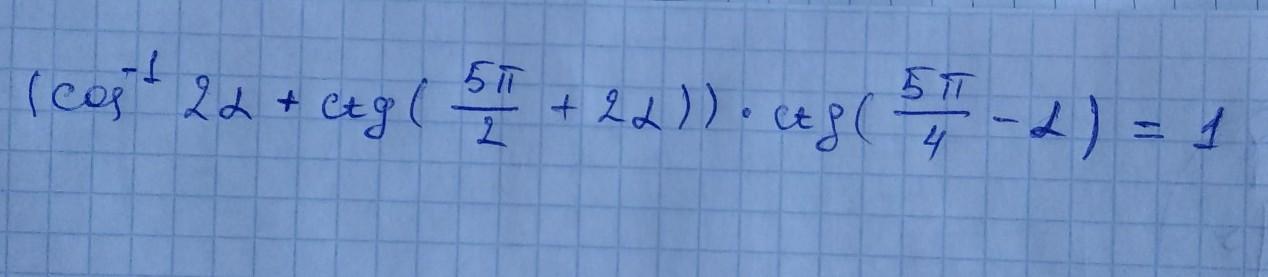 (cos⁻¹ 2α + ctg( 5π/2 + 2α)) · ctg( 5π/4 − α) = 1